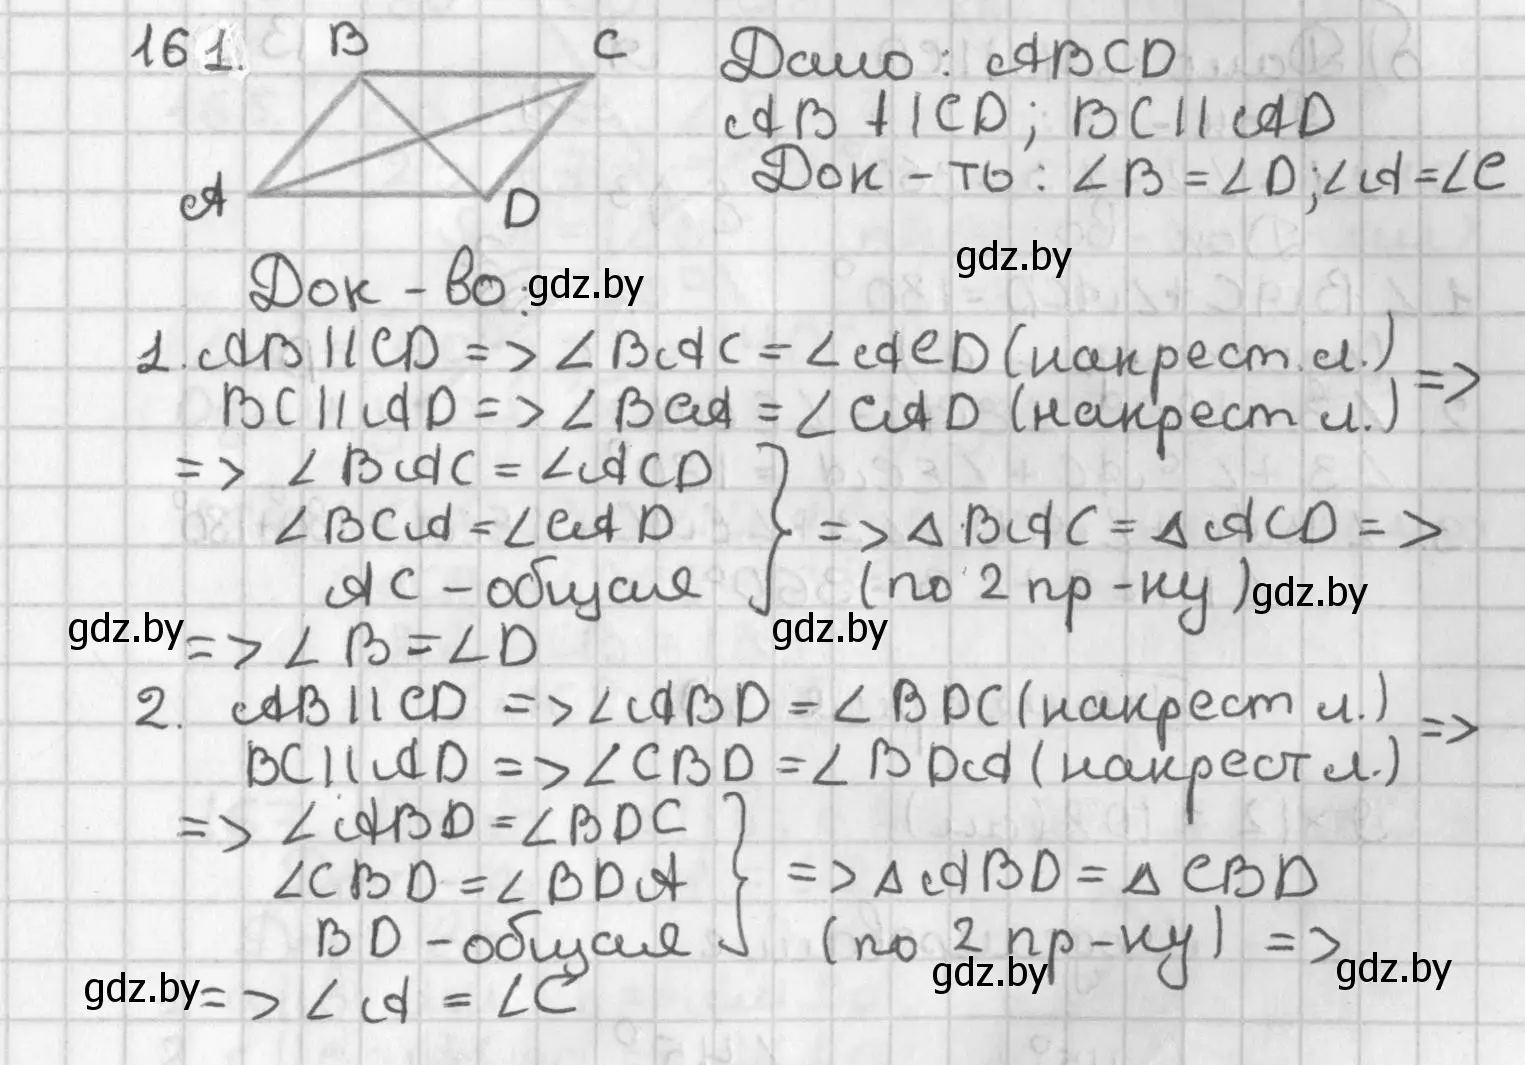 161.
B
C
A
D
Дано: ABCD
AB ∥ CD; BC ∥ AD
Док-ть: ∠B = ∠D; ∠A = ∠C
gdz.by
Док-во:
gdz.by
1. AB ∥ CD => ∠BAC = ∠ACD (накрест. л.) =>
BC ∥ AD => ∠BCA = ∠CAD (накрест л.)
=> ∠BAC = ∠ACD
∠BCA = ∠CAD } => △BAC = △ACD =>
AC - общая (по 2 пр-ку)
gdz.by
gdz.by
gdz.by
=> ∠B = ∠D
2. AB ∥ CD => ∠ABD = ∠BDC (накрест л.) =>
BC ∥ AD => ∠CBD = ∠BDA (накрест л.)
=> ∠ABD = ∠BDC
∠CBD = ∠BDA } => △ABD = △CBD
BD - общая (по 2 пр-ку) =>
gdz.by
gdz.by
gdz.by
=> ∠A = ∠C